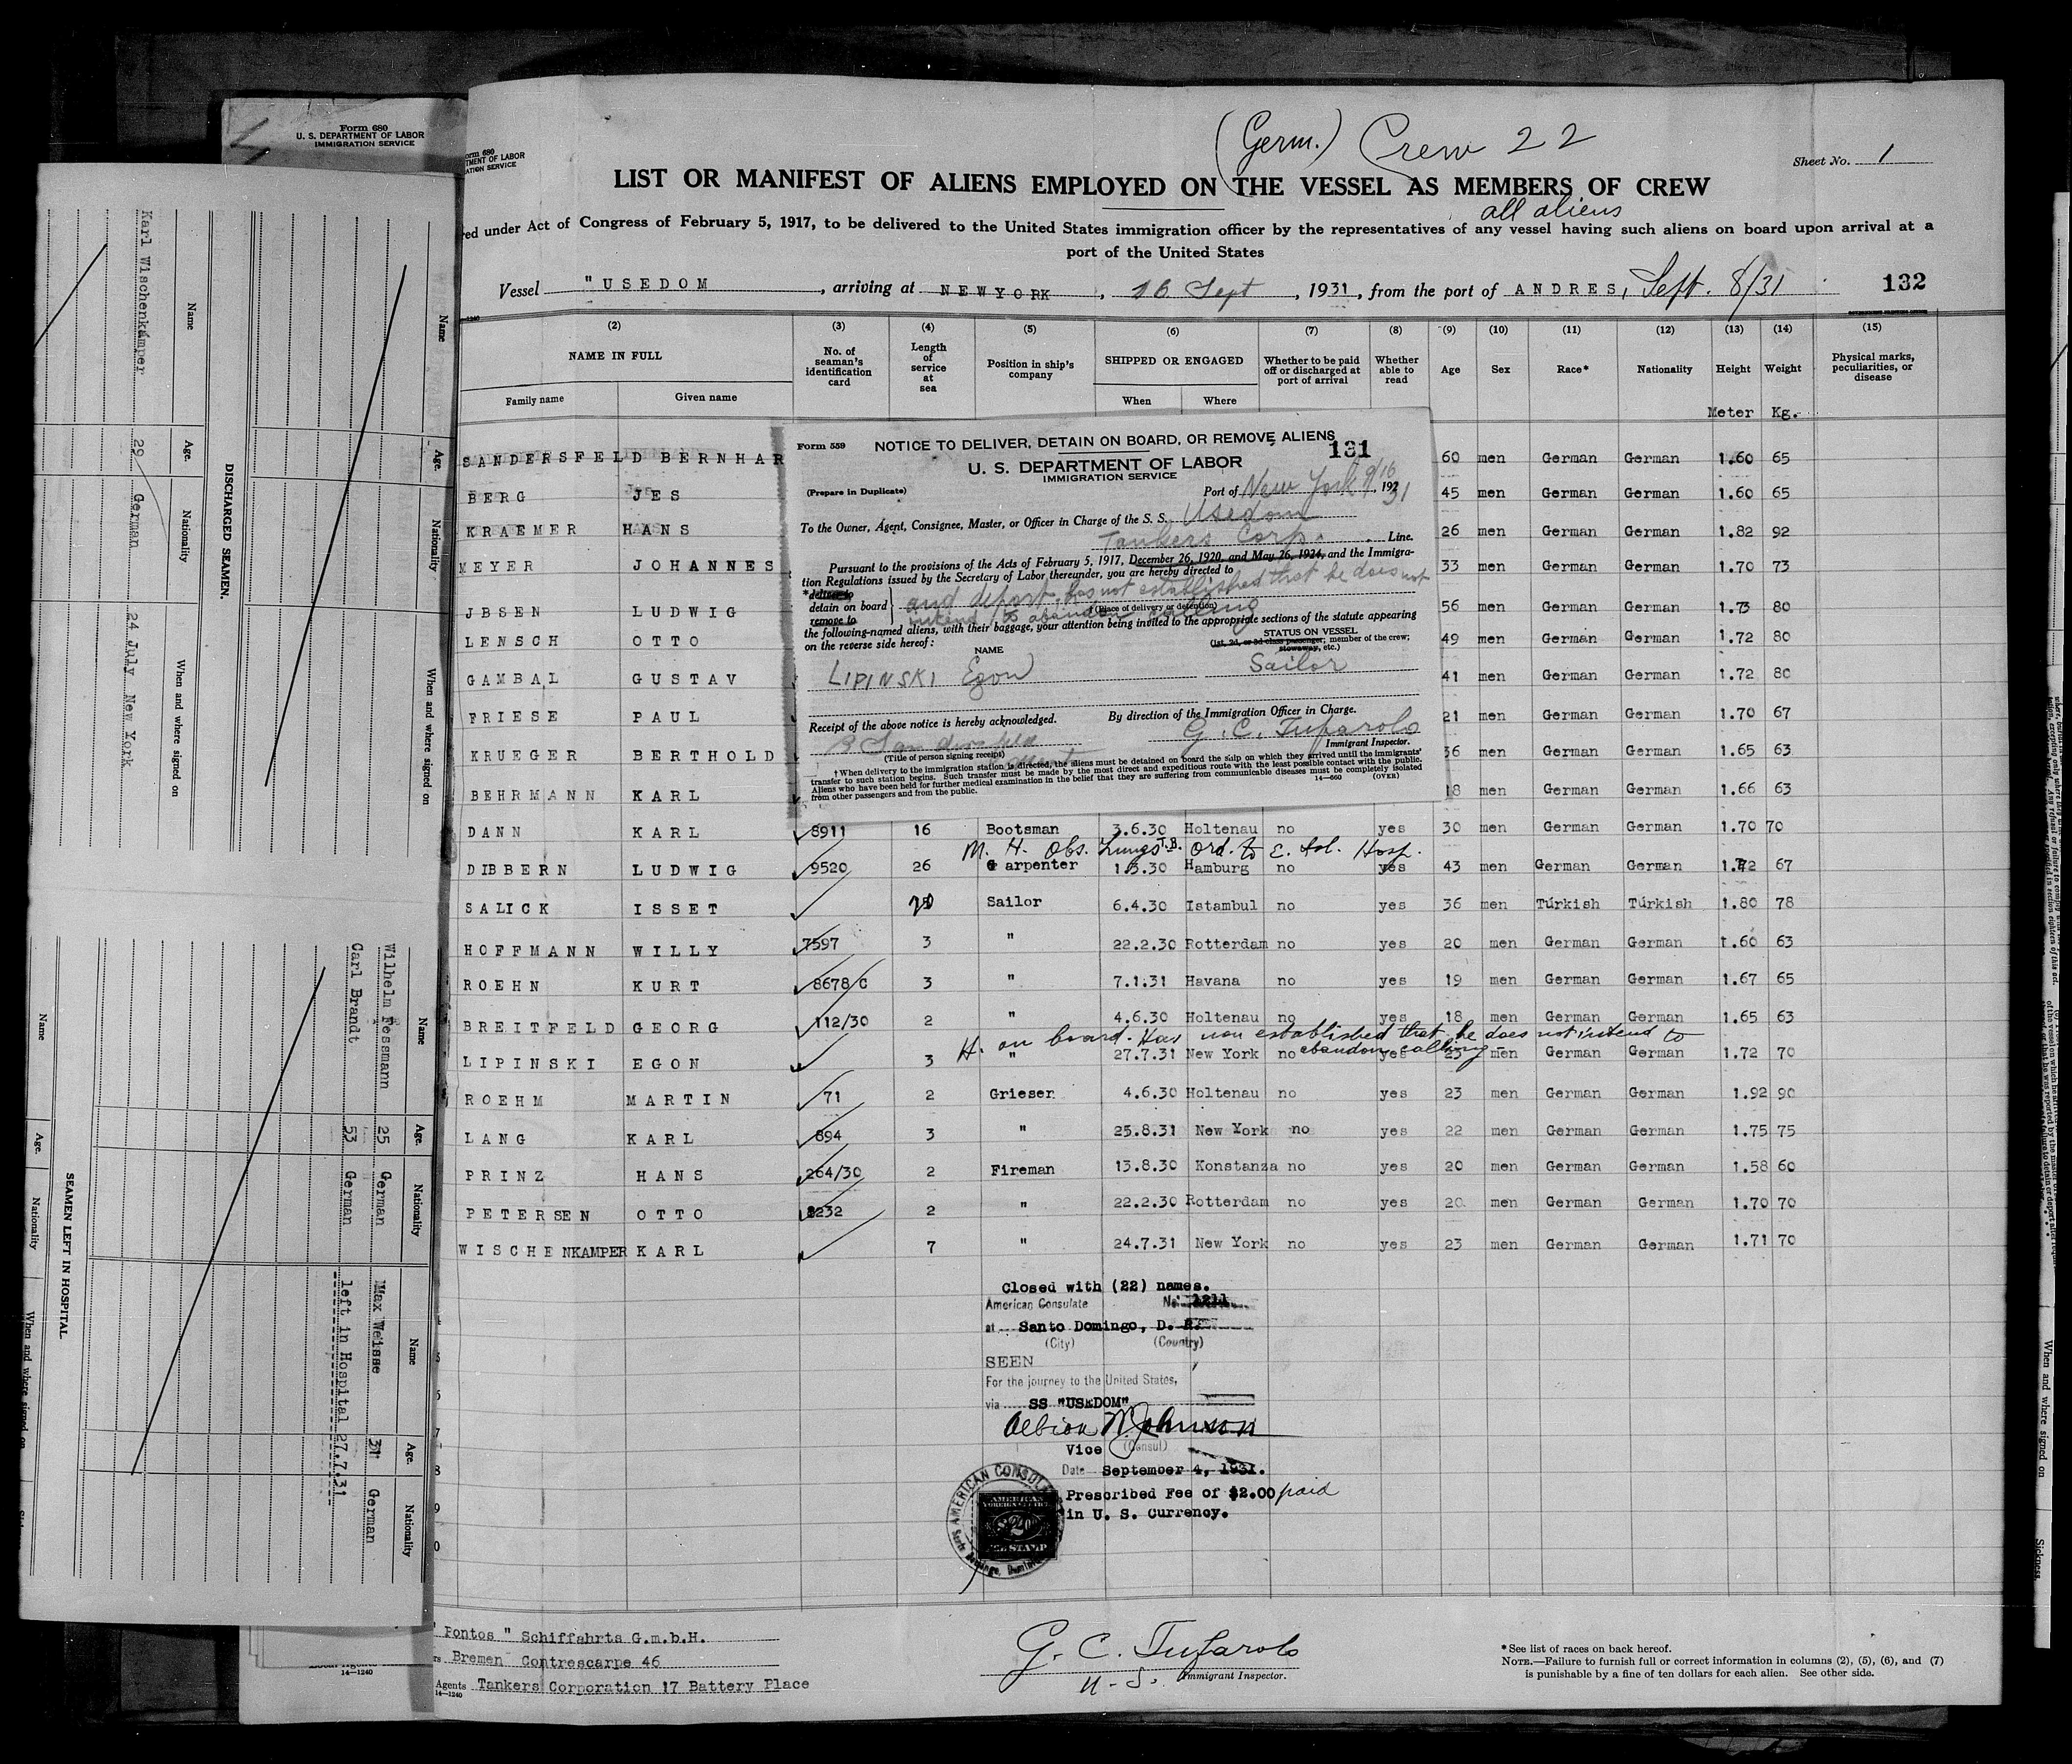 (Germ.) Crew 22
Form 680
U. S. DEPARTMENT OF LABOR
IMMIGRATION SERVICE
orm 680
TMENT OF LABOR
ATION SERVICE
Sheet No. 1
LIST OR MANIFEST OF ALIENS EMPLOYED ON THE VESSEL AS MEMBERS OF CREW
all aliens
red under Act of Congress of February 5, 1917, to be delivered to the United States immigration officer by the representatives of any vessel having such aliens on board upon arrival at a
port of the United States
Vessel "USEDOM, arriving at NEWYORK, 16 Sept, 1931, from the port of ANDRES, Sept. 8/31 132
(2) (3) (4) (5) (6) (7) (8) (9) (10) (11) (12) (13) (14) (15)
NAME IN FULL No. of seaman's identification card Length of service at sea Position in ship's company SHIPPED OR ENGAGED Whether to be paid off or discharged at port of arrival Whether able to read Age Sex Race* Nationality Height Weight Physical marks, peculiarities, or disease
Family name Given name When Where
Meter Kg.
SANDERSFELD BERNHAR 60 men German German 1.60 65
BERG JES 45 men German German 1.60 65
KRAEMER HANS 26 men German German 1.82 92
MEYER JOHANNES 33 men German German 1.70 73
JBSEN LUDWIG 56 men German German 1.73 80
LENSCH OTTO 49 men German German 1.72 80
GAMBAL GUSTAV 41 men German German 1.72 80
FRIESE PAUL 21 men German German 1.70 67
KRUEGER BERTHOLD 36 men German German 1.65 63
BEHRMANN KARL 18 men German German 1.66 63
DANN KARL 8911 16 Bootsman 3.6.30 Holtenau no yes 30 men German German 1.70 70
M. H. Obs. Lungs T.B. Ord. to E. Isl. Hosp.
DIBBERN LUDWIG 9520 26 Carpenter 1.3.30 Hamburg no yes 43 men German German 1.72 67
SALICK ISSET Sailor 6.4.30 Istambul no yes 36 men Turkish Turkish 1.80 78
HOFFMANN WILLY 7597 3 " 22.2.30 Rotterdam no yes 20 men German German 1.60 63
ROEHN KURT 8678/C 3 " 7.1.31 Havana no yes 19 men German German 1.67 65
BREITFELD GEORG 112/30 2 " 4.6.30 Holtenau no yes 18 men German German 1.65 63
H. on board. Has non established that he does not intend to
abandon calling
LIPINSKI EGON 3 " 27.7.31 New York no yes 23 men German German 1.72 70
ROEHM MARTIN 71 2 Grieser 4.6.30 Holtenau no yes 23 men German German 1.92 90
LANG KARL 894 3 " 25.8.31 New York no yes 22 men German German 1.75 75
PRINZ HANS 264/30 2 Fireman 13.8.30 Konstanza no yes 20 men German German 1.58 60
PETERSEN OTTO 8232 2 " 22.2.30 Rotterdam no yes 20 men German German 1.70 70
WISCHENKAMPER KARL 7 " 24.7.31 New York no yes 23 men German German 1.71 70
Form 559
NOTICE TO DELIVER, DETAIN ON BOARD, OR REMOVE ALIENS
131
U. S. DEPARTMENT OF LABOR
IMMIGRATION SERVICE
(Prepare in Duplicate)
Port of New York 9/16, 1931
To the Owner, Agent, Consignee, Master, or Officer in Charge of the S. S. Usedom
Tankers Corp. Line.
Pursuant to the provisions of the Acts of February 5, 1917, December 26, 1920, and May 26, 1924, and the Immigra-
tion Regulations issued by the Secretary of Labor thereunder, you are hereby directed to
*deliver to
detain on board
remove to
and deport, has not established that he does not
intend to abandon calling
(Place of delivery or detention)
the following-named aliens, with their baggage, your attention being invited to the appropriate sections of the statute appearing
on the reverse side hereof:
NAME
STATUS ON VESSEL
(1st, 2d, or 3d class passenger; member of the crew;
stowaway, etc.)
LIPINSKI Egon Sailor
Receipt of the above notice is hereby acknowledged.
By direction of the Immigration Officer in Charge.
G. C. Tufarolo
Immigrant Inspector.
(Title of person signing receipt)
† When delivery to the immigration station is directed, the aliens must be detained on board the ship on which they arrived until the immigrants'
transfer to such station begins. Such transfer must be made by the most direct and expeditious route with the least possible contact with the public.
Aliens who have been held for further medical examination in the belief that they are suffering from communicable diseases must be completely isolated
from other passengers and from the public.
14—660 (OVER)
Closed with (22) names.
American Consulate No. 1211
at Santo Domingo, D. R.
(City) (Country)
SEEN
For the journey to the United States,
via SS "USEDOM"
Albion W. Johnson
Vice (Consul)
Date September 4, 1931.
Prescribed Fee of $2.00 paid
in U. S. Currency.
AMERICAN CONSUL
AMERICAN
FOREIGN SERVICE
FEE STAMP
" Pontos " Schiffahrts G.m.b.H.
Bremen Contrescarpe 46
Agents Tankers Corporation 17 Battery Place
14—1240
G. C. Tufarolo
U. S. Immigrant Inspector.
*See list of races on back hereof.
NOTE.—Failure to furnish full or correct information in columns (2), (5), (6), and (7)
is punishable by a fine of ten dollars for each alien. See other side.
DISCHARGED SEAMEN.
Name Age. Nationality When and where signed on
Karl Wischenkämper 29 German 24 July New York
SEAMEN LEFT IN HOSPITAL
Name Age. Nationality
Wilhelm Fessmann 25 German
Carl Brandt 53 German
Max Weisse 31 German
left in Hospital 27.7.31